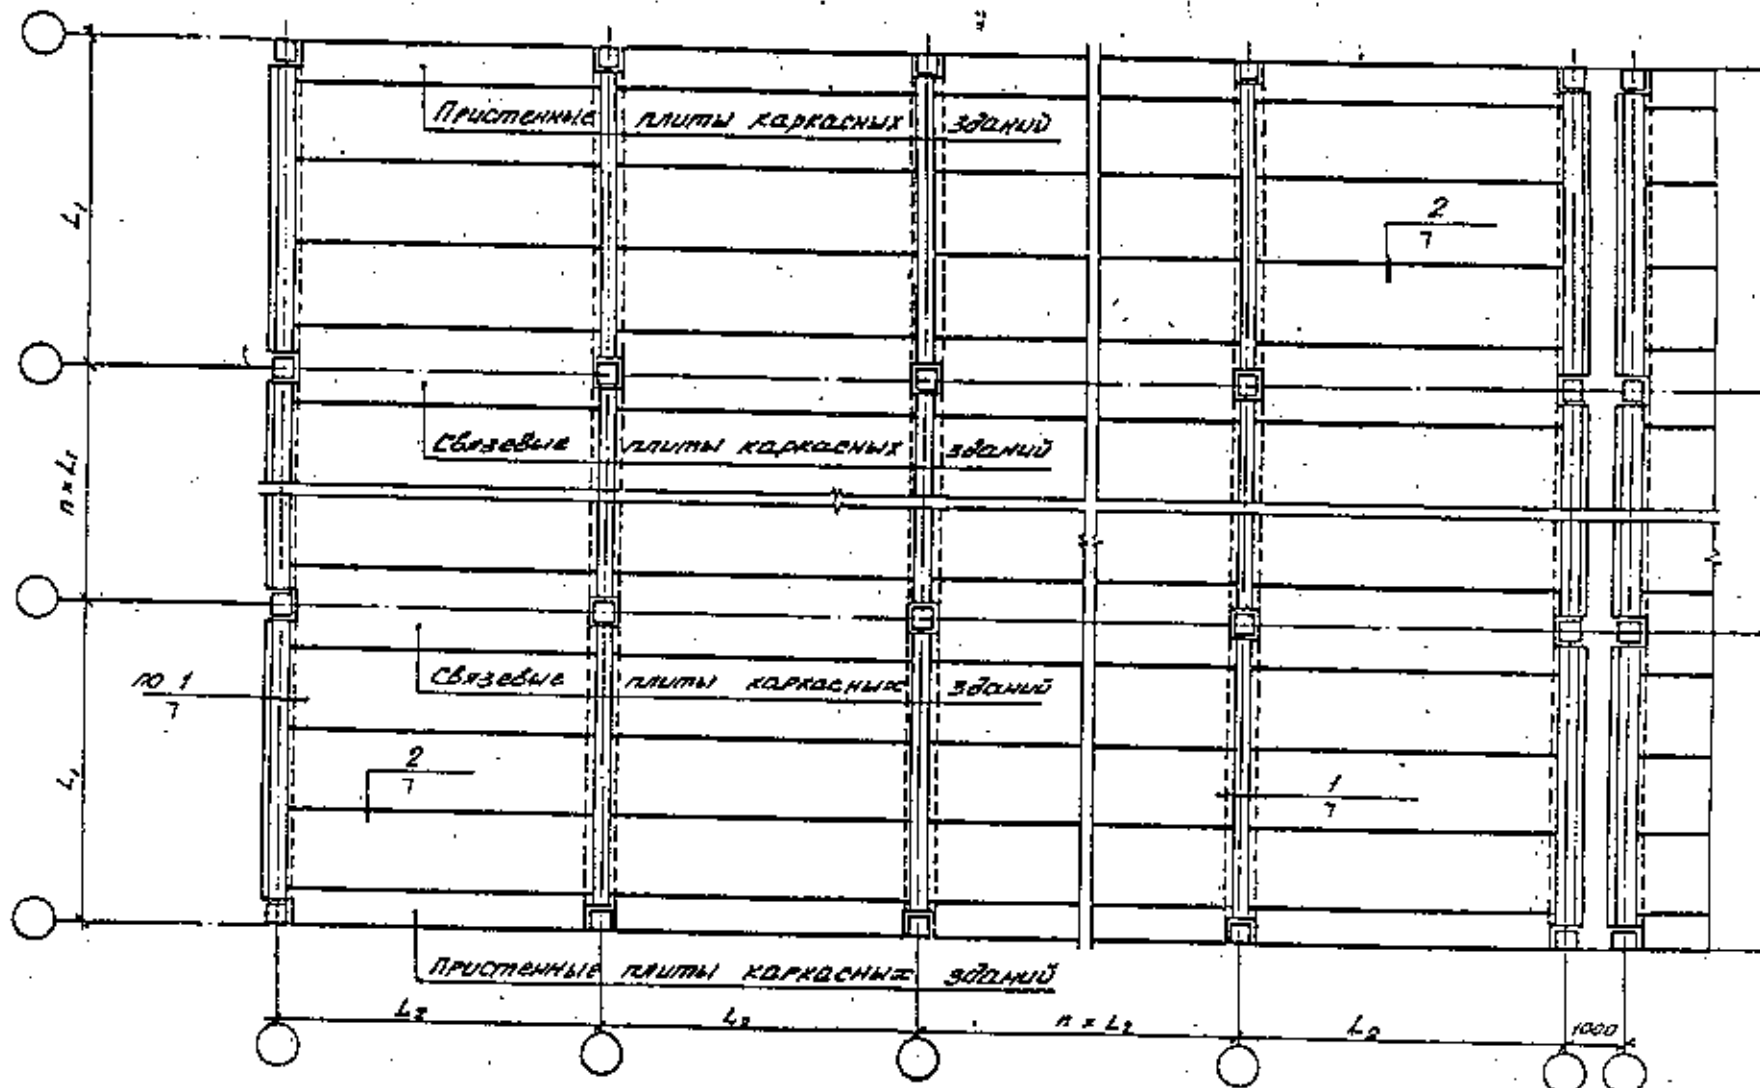 Пристенные плиты каркасных зданий
L₁
2
7
Связевые плиты каркасных зданий
n×L₁
Связевые плиты каркасных зданий
по 1
7
2
7
L₁
1
7
Пристенные плиты каркасных зданий
L₂
L₂
n×L₂
L₂
1000